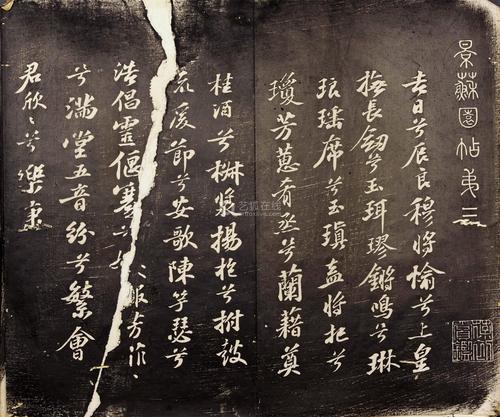 景蘇園帖弟三
吉日兮辰良穆將愉兮上皇
撫長劒兮玉珥璆鏘鳴兮琳
琅瑤席兮玉瑱盍將把兮
瓊芳蕙肴烝兮蘭藉奠
桂酒兮椒漿揚枹兮拊鼓
疏緩節兮安歌陳竽瑟兮
浩倡靈偃蹇服芳菲〻
兮滿堂五音紛兮繁會
君欣〻兮樂康
艺狐在线